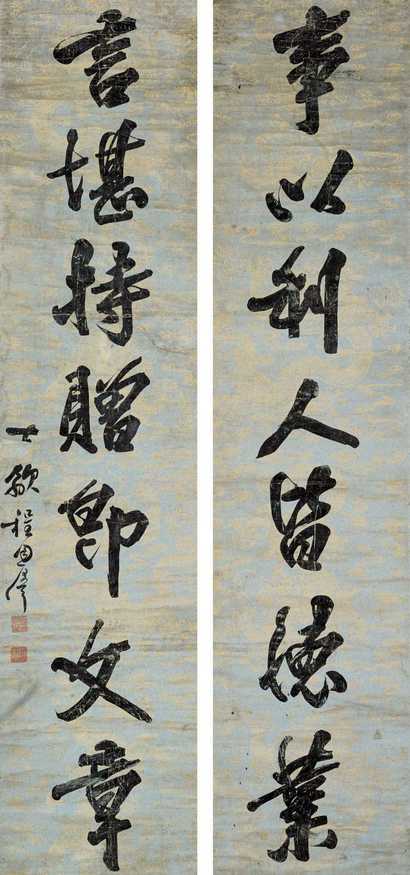 事以利人皆德業
言堪持贈即文章
古歙程恩澤